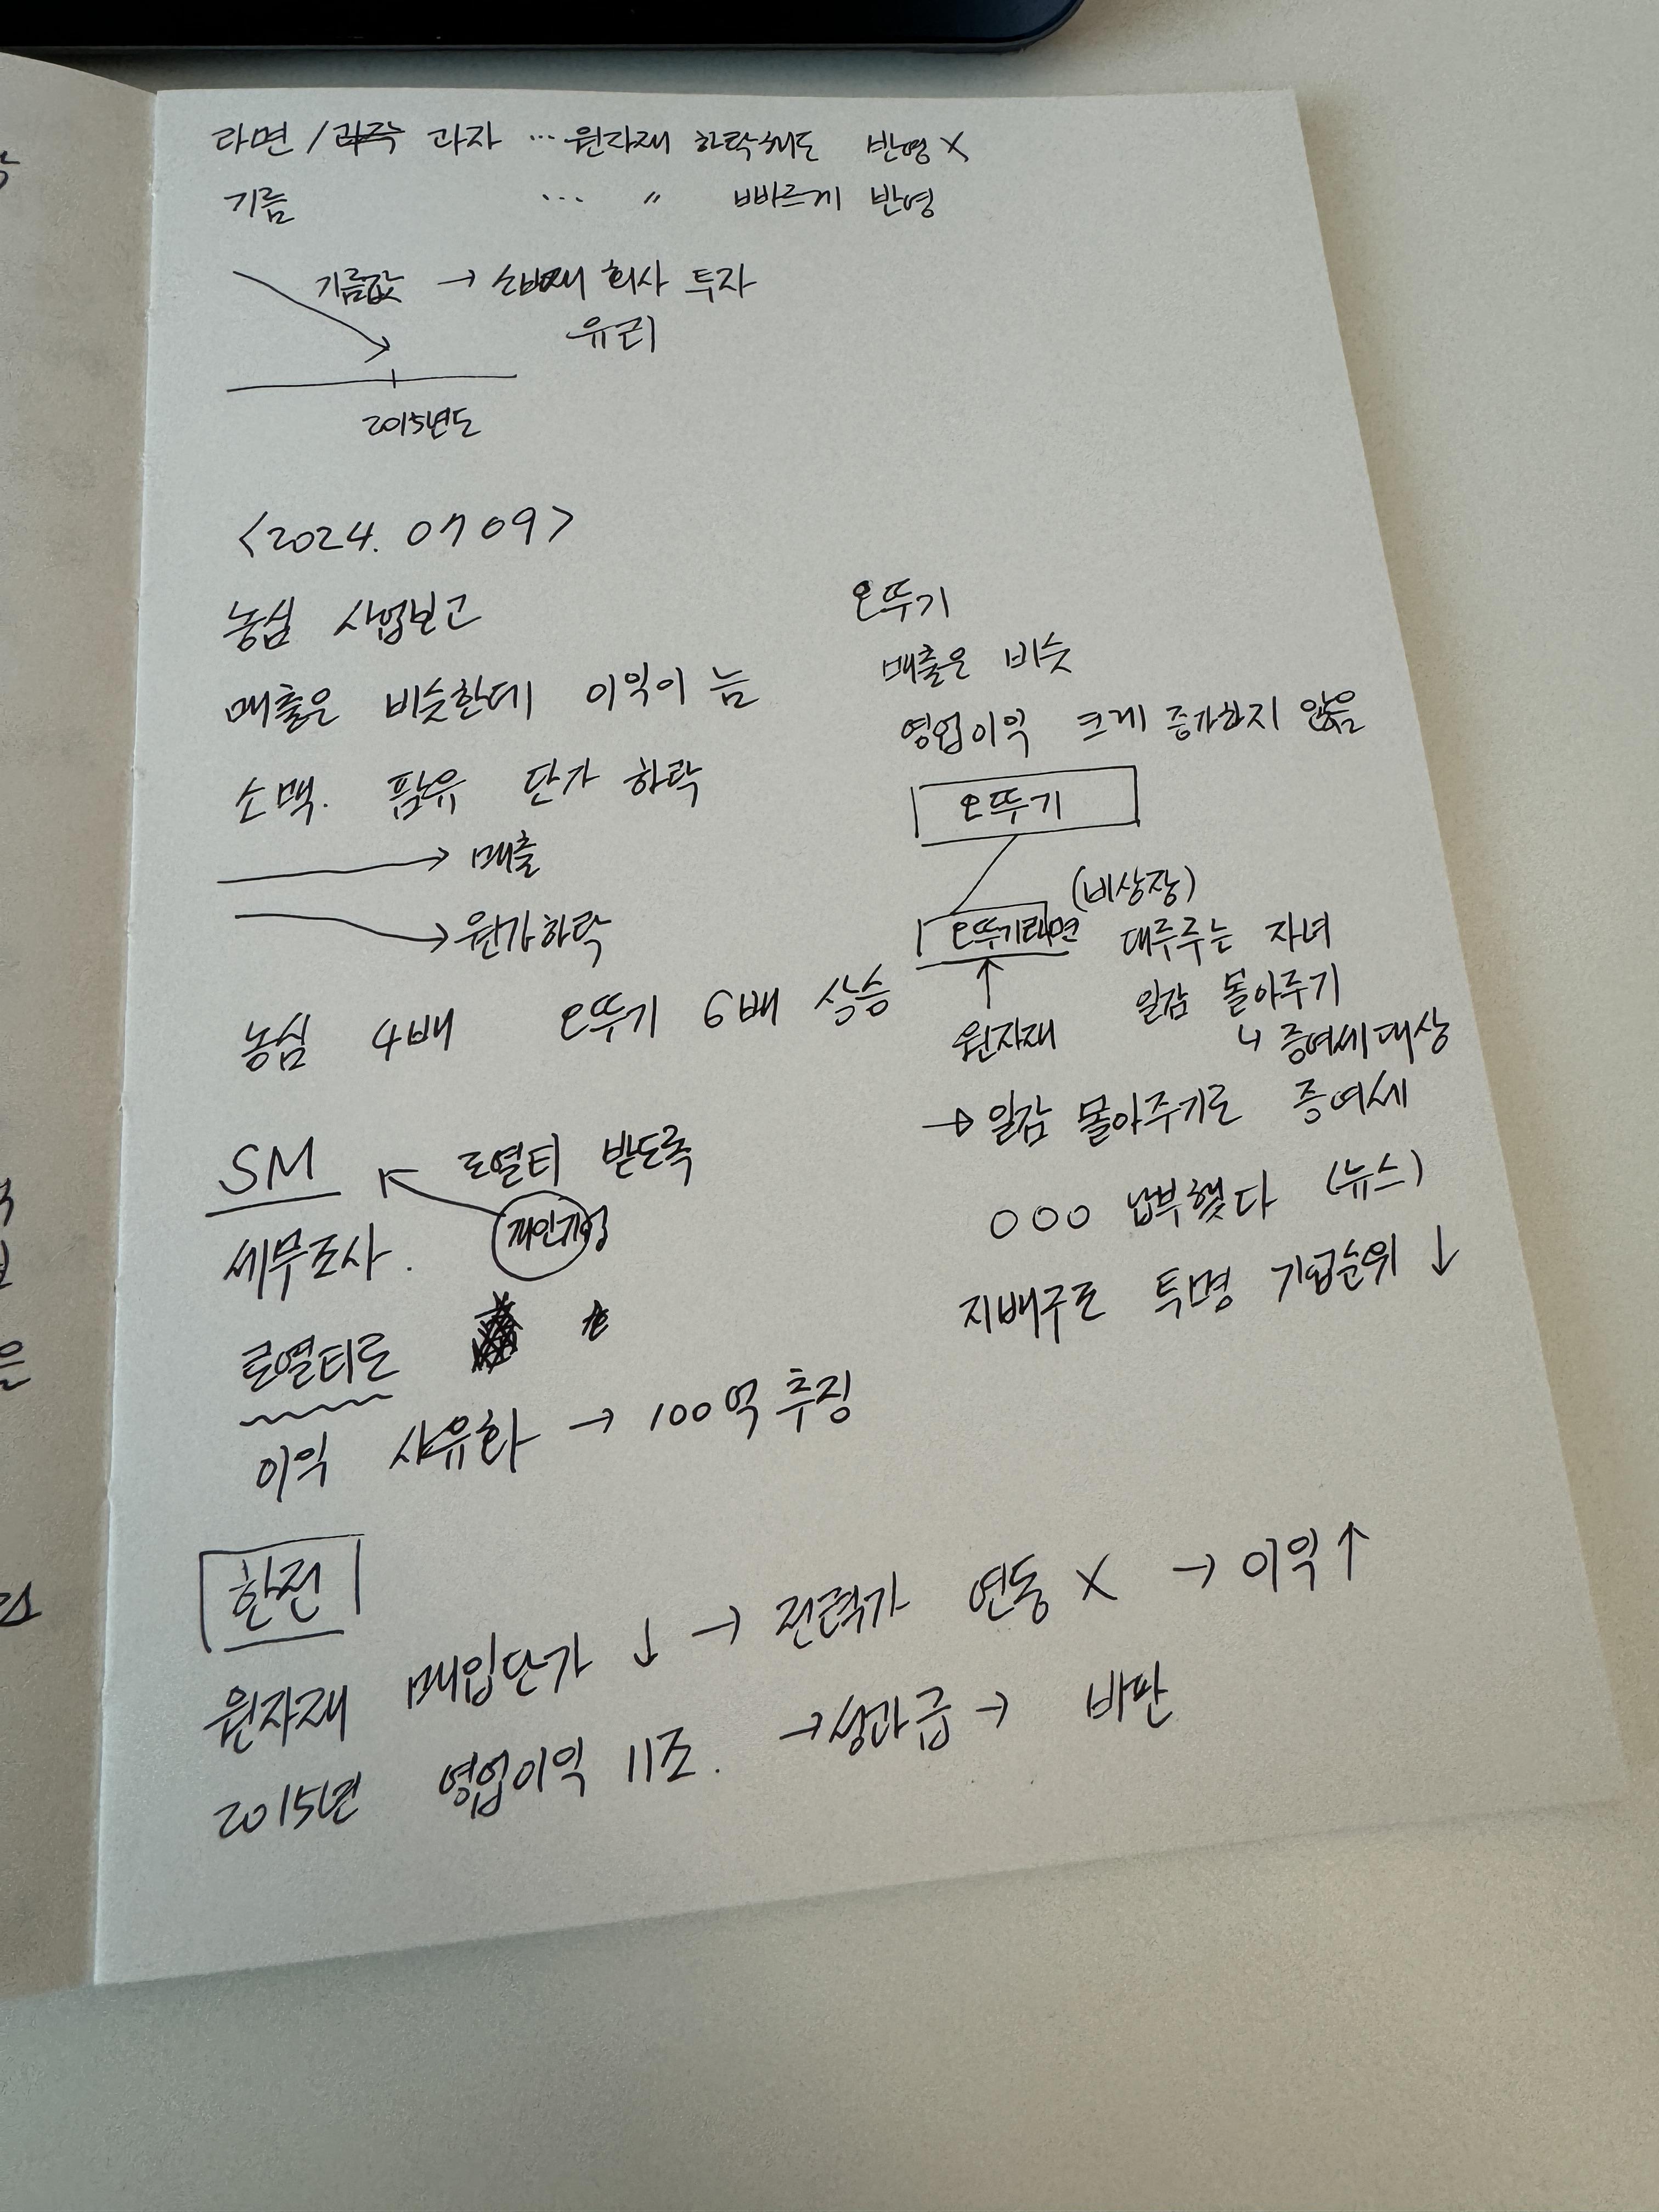 라면 / 과자 … 원자재 하락해도 반영 X
기름 … 〃 빠르게 반영
기름값 → 소비재 회사 투자
유리
2015년도
<2024. 07 09>
농심 사업보고
매출은 비슷한데 이익이 늠
소맥. 팜유 단가 하락
→ 매출
→ 원가하락
농심 4배 오뚜기 6배 상승
오뚜기
매출은 비슷
영업이익 크게 증가하지 않음
오뚜기
(비상장)
오뚜기라면 대주주는 자녀
↑ 일감 몰아주기
원자재 ↳ 증여세 대상
→ 일감 몰아주기로 증여세
○○○ 납부했다 (뉴스)
지배구조 투명 기업순위 ↓
SM ← 로열티 받도록
세무조사. 개인기업
로열티로
이익 사유화 → 100억 추징
한전
원자재 매입단가 ↓ → 전력가 연동 X → 이익 ↑
2015년 영업이익 11조. → 성과급 → 비판